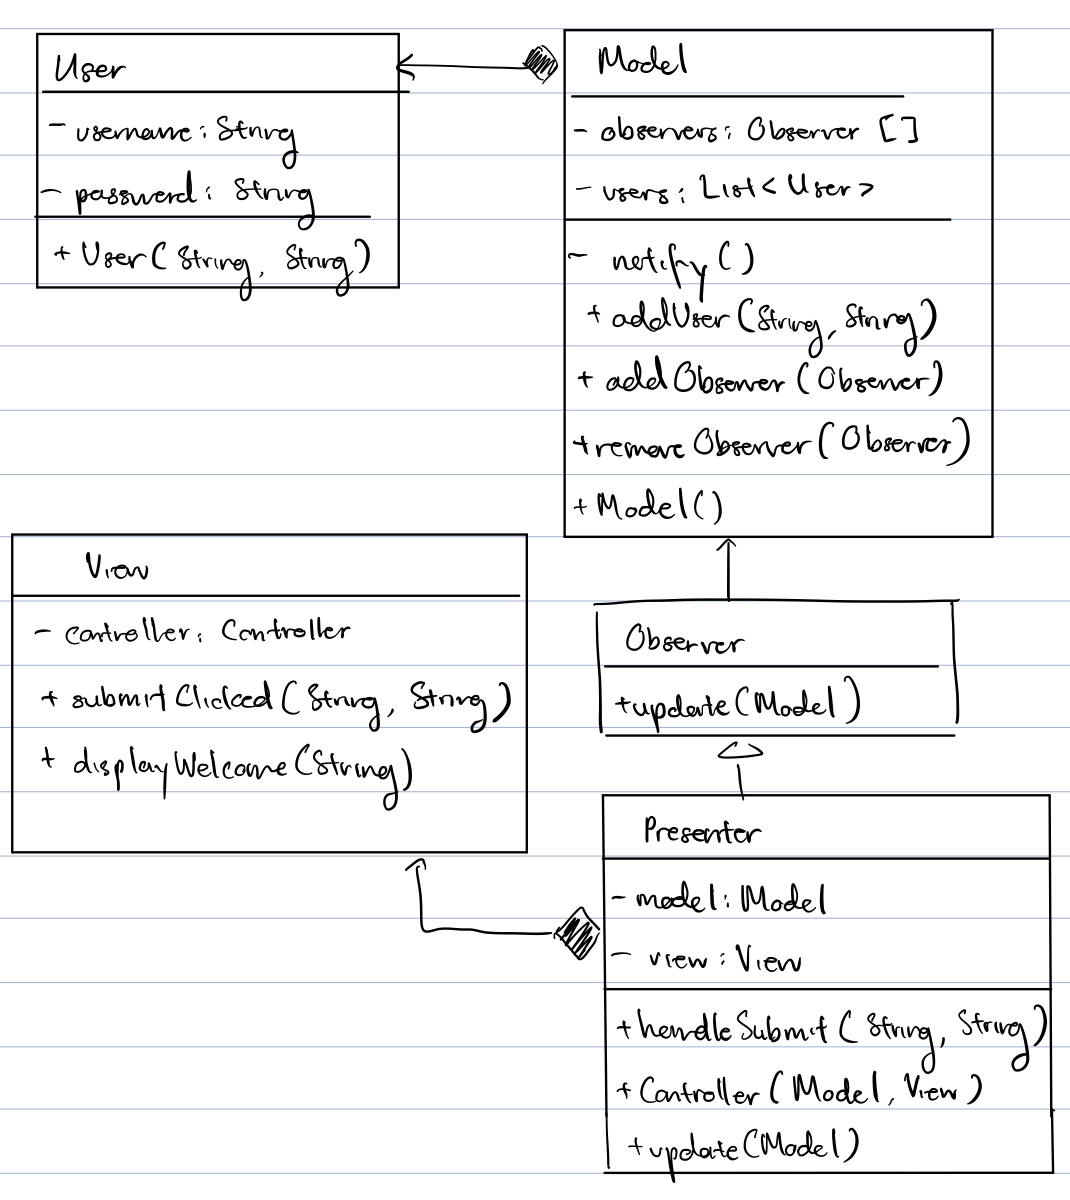 User
- username: String
- password: String
+ User(String, String)
Model
- observers: Observer []
- users: List<User>
- notify()
+ addUser(String, String)
+ addObserver(Observer)
+ removeObserver(Observer)
+ Model()
View
- controller: Controller
+ submitClicked(String, String)
+ displayWelcome(String)
Observer
+ update(Model)
Presenter
- model: Model
- view: View
+ handleSubmit(String, String)
+ Controller(Model, View)
+ update(Model)